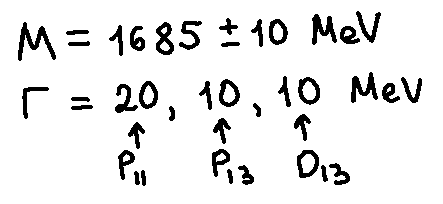 M = 1685 ± 10 MeV
Γ = 20, 10, 10 MeV
↑ ↑ ↑
P₁₁ P₁₃ D₁₃